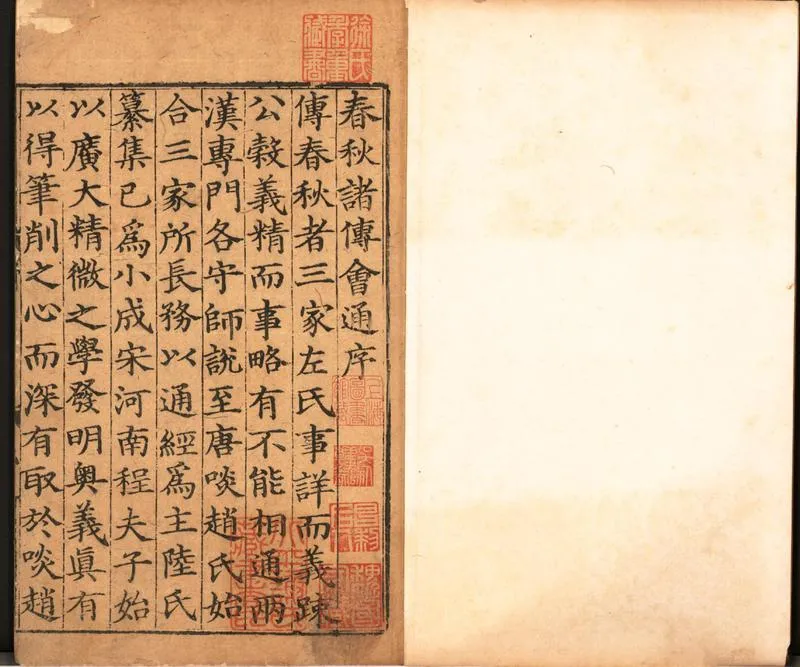 春秋諸傳會通序
傳春秋者三家左氏事詳而義踈
公穀義精而事略有不能相通兩
漢專門各守師說至唐啖趙氏始
合三家所長務以通經爲主陸氏
纂集已爲小成宋河南程夫子始
以廣大精微之學發明奥義真有
以得筆削之心而深有取於啖趙